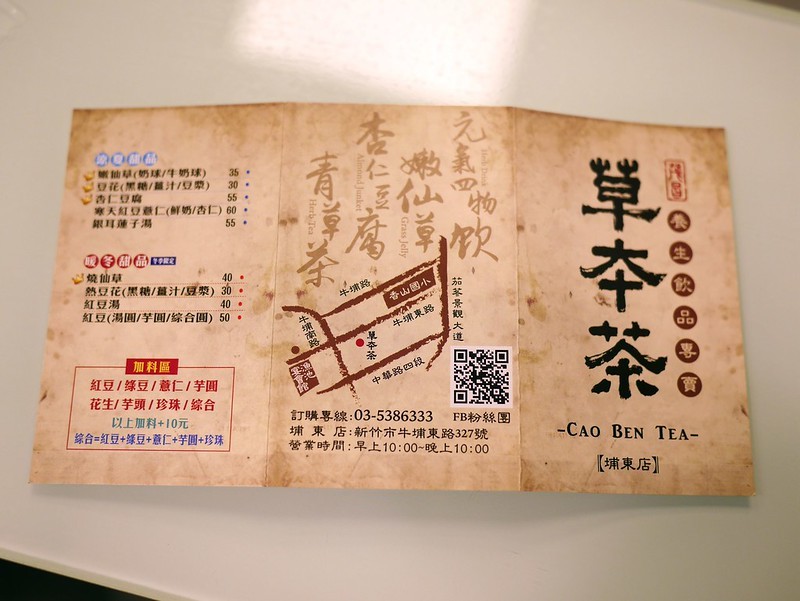 涼夏甜品
嫩仙草(奶球/牛奶球) 35
豆花(黑糖/薑汁/豆漿) 30
杏仁豆腐 55
寒天紅豆薏仁(鮮奶/杏仁) 60
銀耳蓮子湯 55
暖冬甜品 冬季限定
燒仙草 40
熱豆花(黑糖/薑汁/豆漿) 30
紅豆湯 40
紅豆(湯圓/芋圓/綜合圓) 50
加料區
紅豆/綠豆/薏仁/芋圓
花生/芋頭/珍珠/綜合
以上加料+10元
綜合=紅豆+綠豆+薏仁+芋圓+珍珠
元氣四物飲
嫩仙草
Grass Jelly
杏仁豆腐
Almond Junket
青草茶
Herb Tea
牛埔路
香山國小
茄苳景觀大道
牛埔南路
牛埔東路
草本茶
中華路四段
訂購專線:03-5386333
FB粉絲團
埔東店:新竹市牛埔東路327號
營業時間:早上10:00~晚上10:00
草本茶
養生飲品專賣
-CAO BEN TEA-
【埔東店】